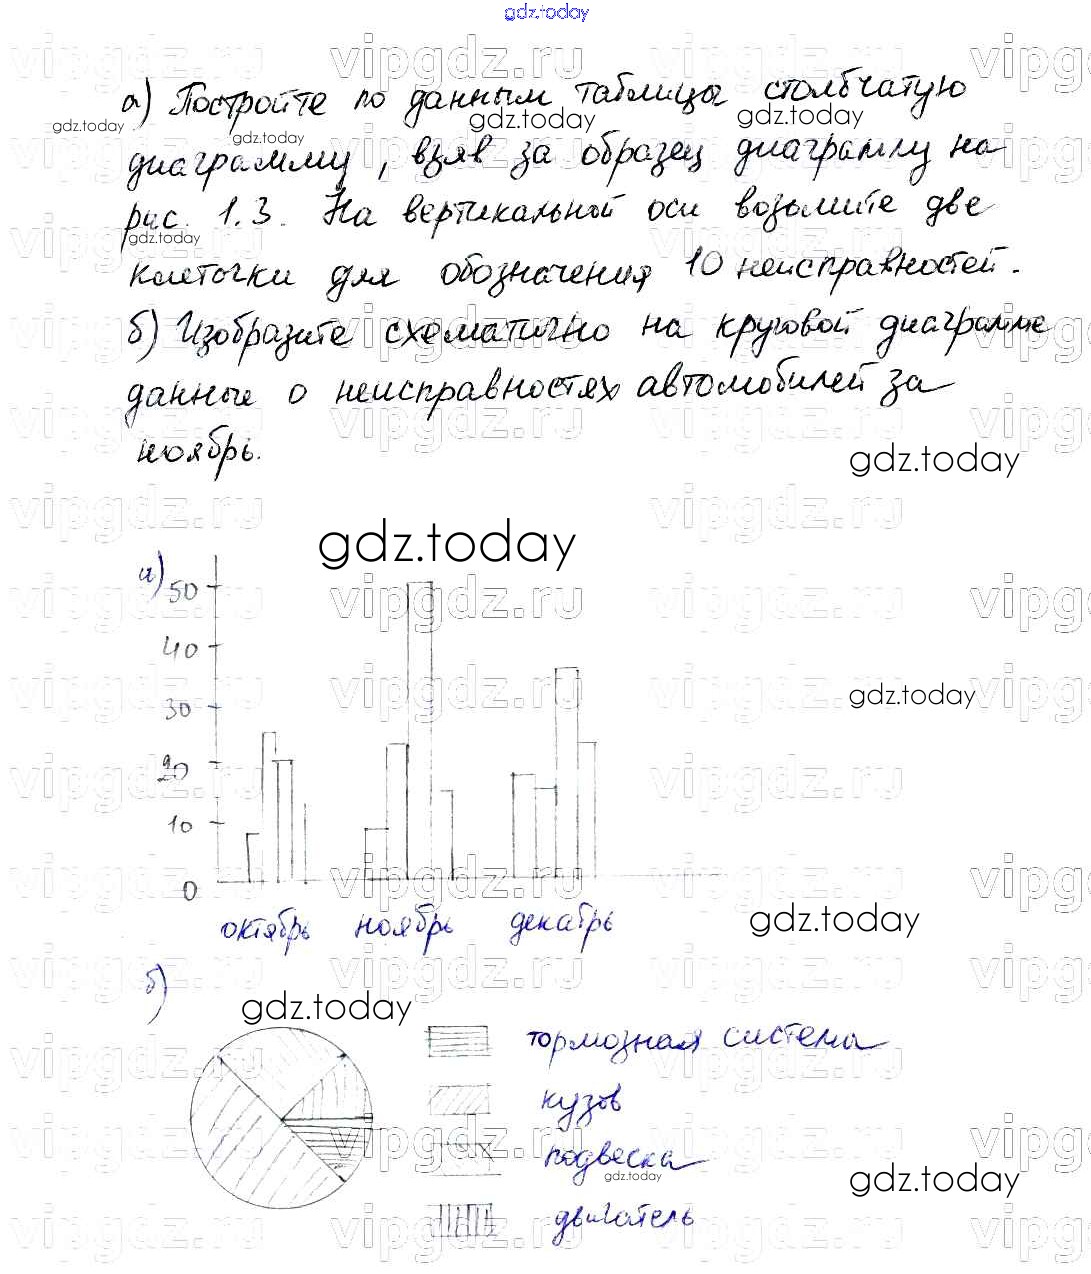 gdz.today
а) Постройте по данным таблицы столбчатую
диаграмму, взяв за образец диаграмму на
рис. 1.3. На вертикальной оси возьмите две
клеточки для обозначения 10 неисправностей.
б) Изобразите схематично на круговой диаграмме
данные о неисправностях автомобилей за
ноябрь.
gdz.today
gdz.today
а)
50
40
30
20
10
0
октябрь ноябрь декабрь
gdz.today
gdz.today
б)
gdz.today
тормозная система
кузов
подвеска
двигатель
gdz.today
vipgdz.ru